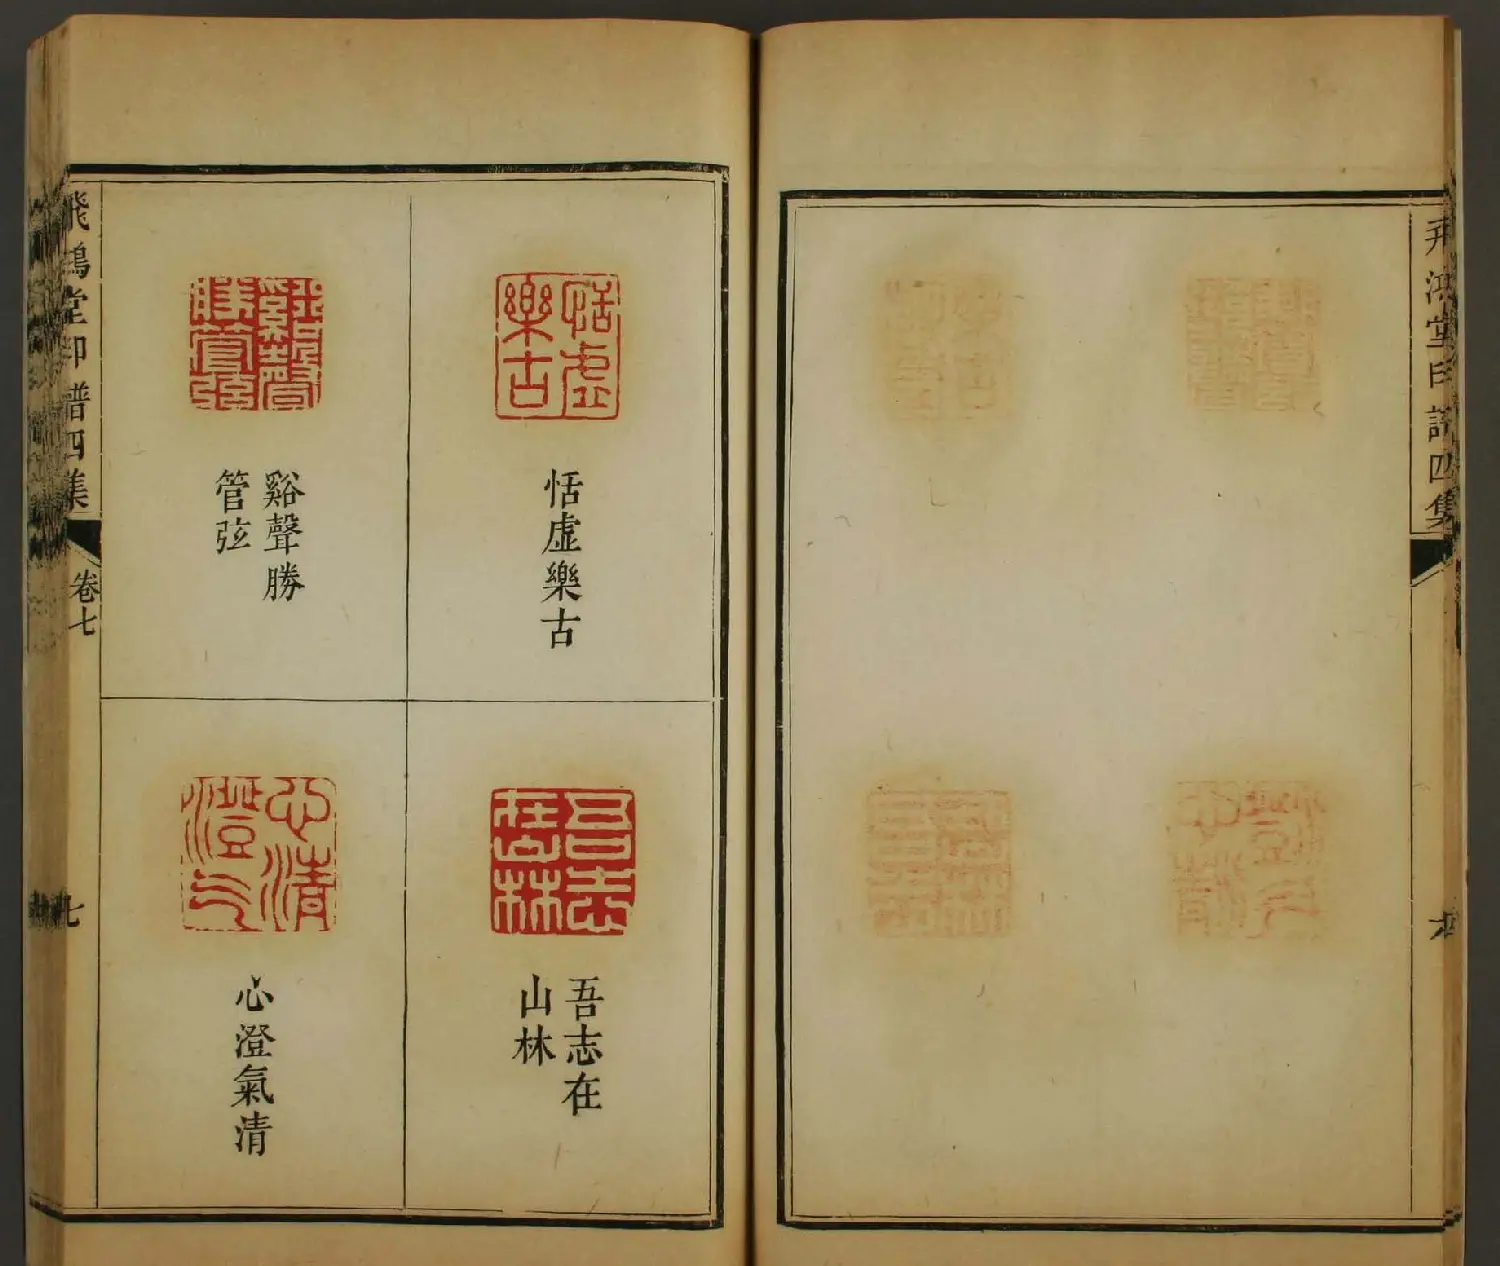 飛鴻堂印譜四集
恬虛樂古
恬虛樂古
谿聲勝管弦
谿聲勝
管弦
吾志在山林
吾志在
山林
心澄氣清
心澄氣清
飛鴻堂印譜四集
卷七
七